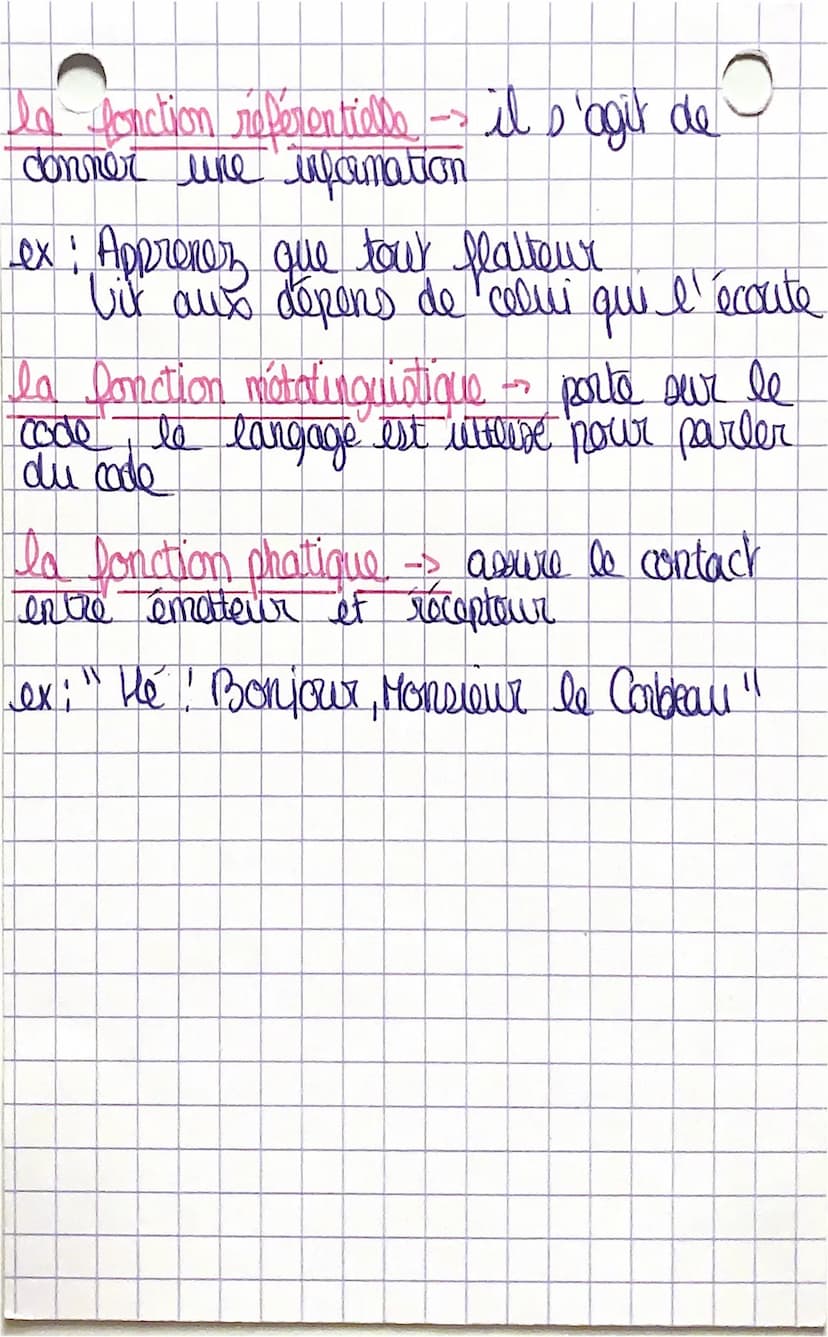 la fonction référentielle -> il s'agit de
donner une information
ex : Apprenez que tout flatteur
Vit aux dépens de celui qui l'écoute
la fonction métalinguistique -> porte sur le
code, le langage est utilisé pour parler
du code
la fonction phatique -> assure le contact
entre émetteur et récepteur
ex : " Hé ! Bonjour, Monsieur le Corbeau "